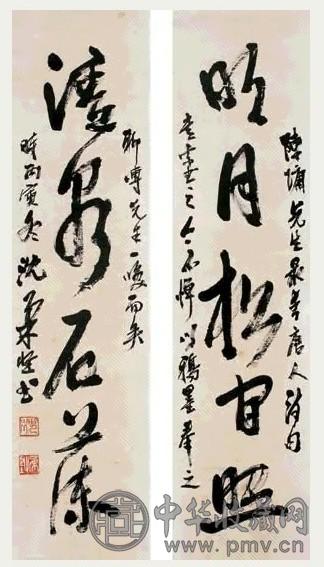 先生最喜唐人詩句
明月松間照
之人不惮以鴉墨奉之
聊博先生一噱而矣
清泉石上流
時丙寅冬沈柔坚书
中华收藏网
www.pmv.cn